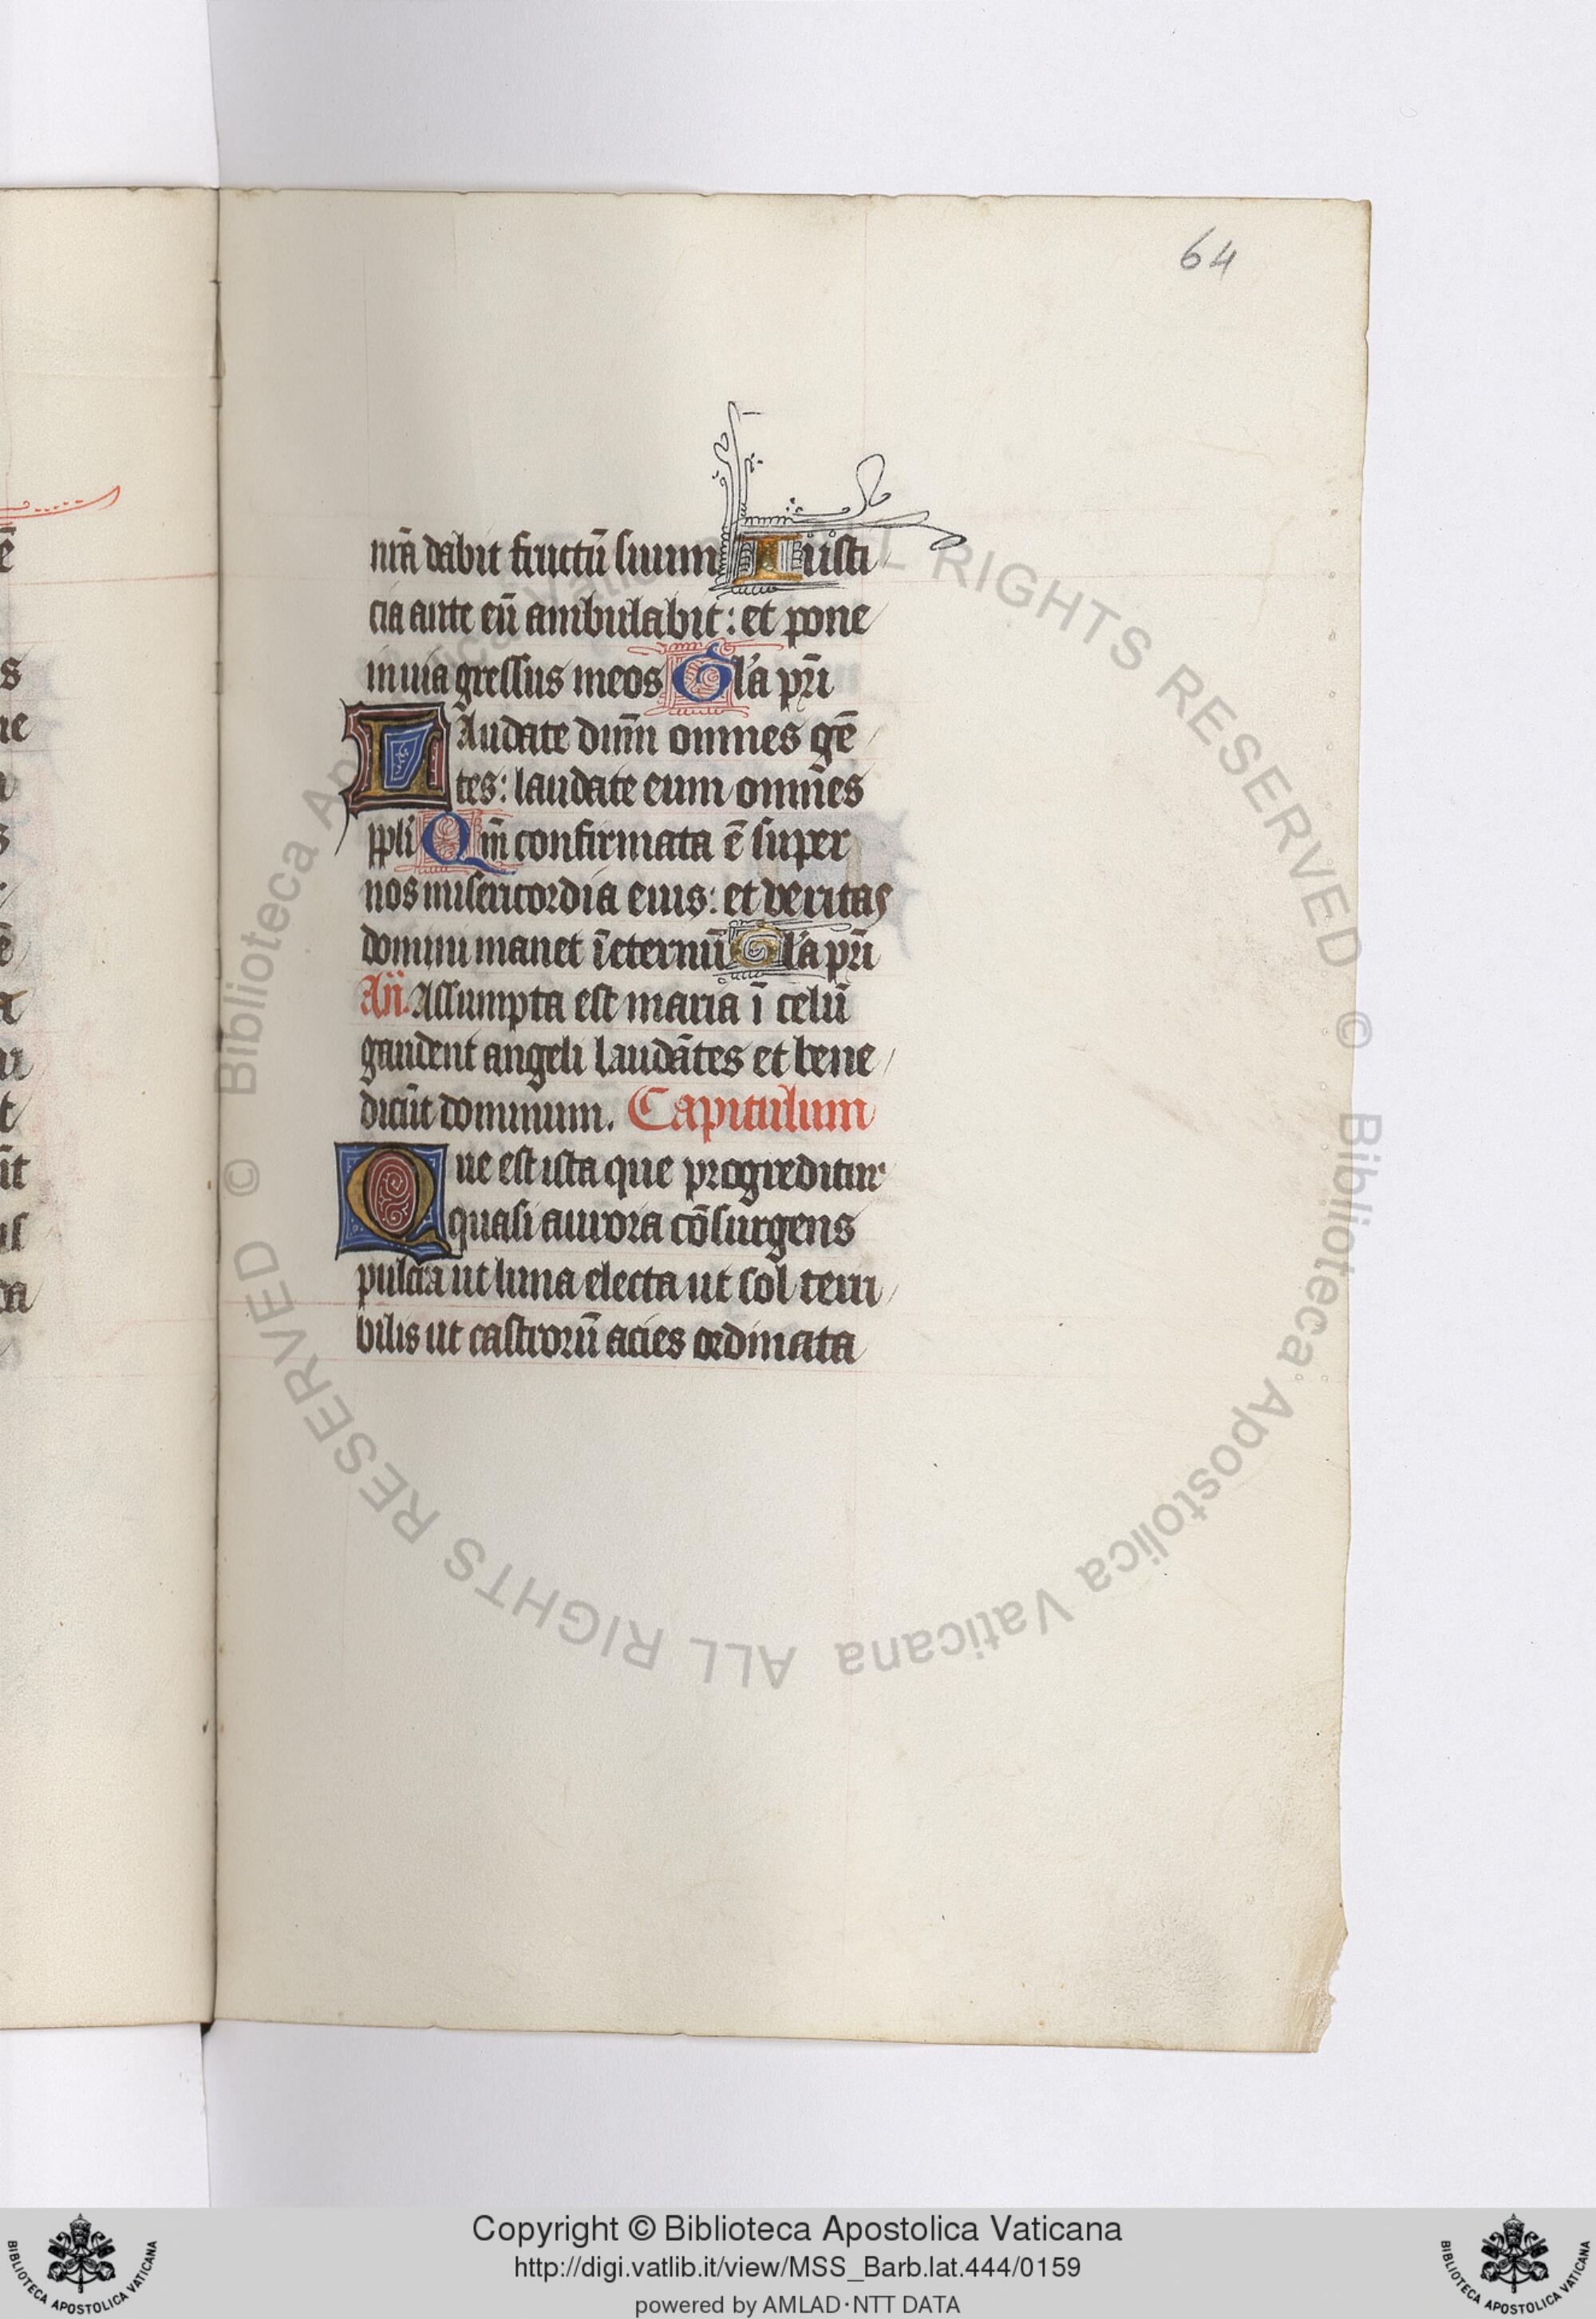 64
nrã dabit fructũ suum Iusti
cia ante eũ ambulabit: et pone
in uia gressus meos Gl'a pr̃i
LAudate dnm̃ omnes gẽ
tes: laudate eum omñes
ppli Qm̃ confirmata ẽ super
nos misericordia eius: et veritas
domini manet ĩ eternũ Gl'a pr̃i
An̄. Assumpta est maria ĩ celũ
gaudent angeli laudãtes et bene
dicũt dominum. Capitulum
Que est ista que progreditur
quasi aurora cõsurgens
pulcra ut luna electa ut sol terri
bilis ut castrorũ acies ordinata
© Biblioteca Apostolica Vaticana ALL RIGHTS RESERVED © Biblioteca Apostolica Vaticana ALL RIGHTS RESERVED
Copyright © Biblioteca Apostolica Vaticana
http://digi.vatlib.it/view/MSS_Barb.lat.444/0159
powered by AMLAD·NTT DATA
BIBLIOTECA APOSTOLICA VATICANA
BIBLIOTECA APOSTOLICA VATICANA